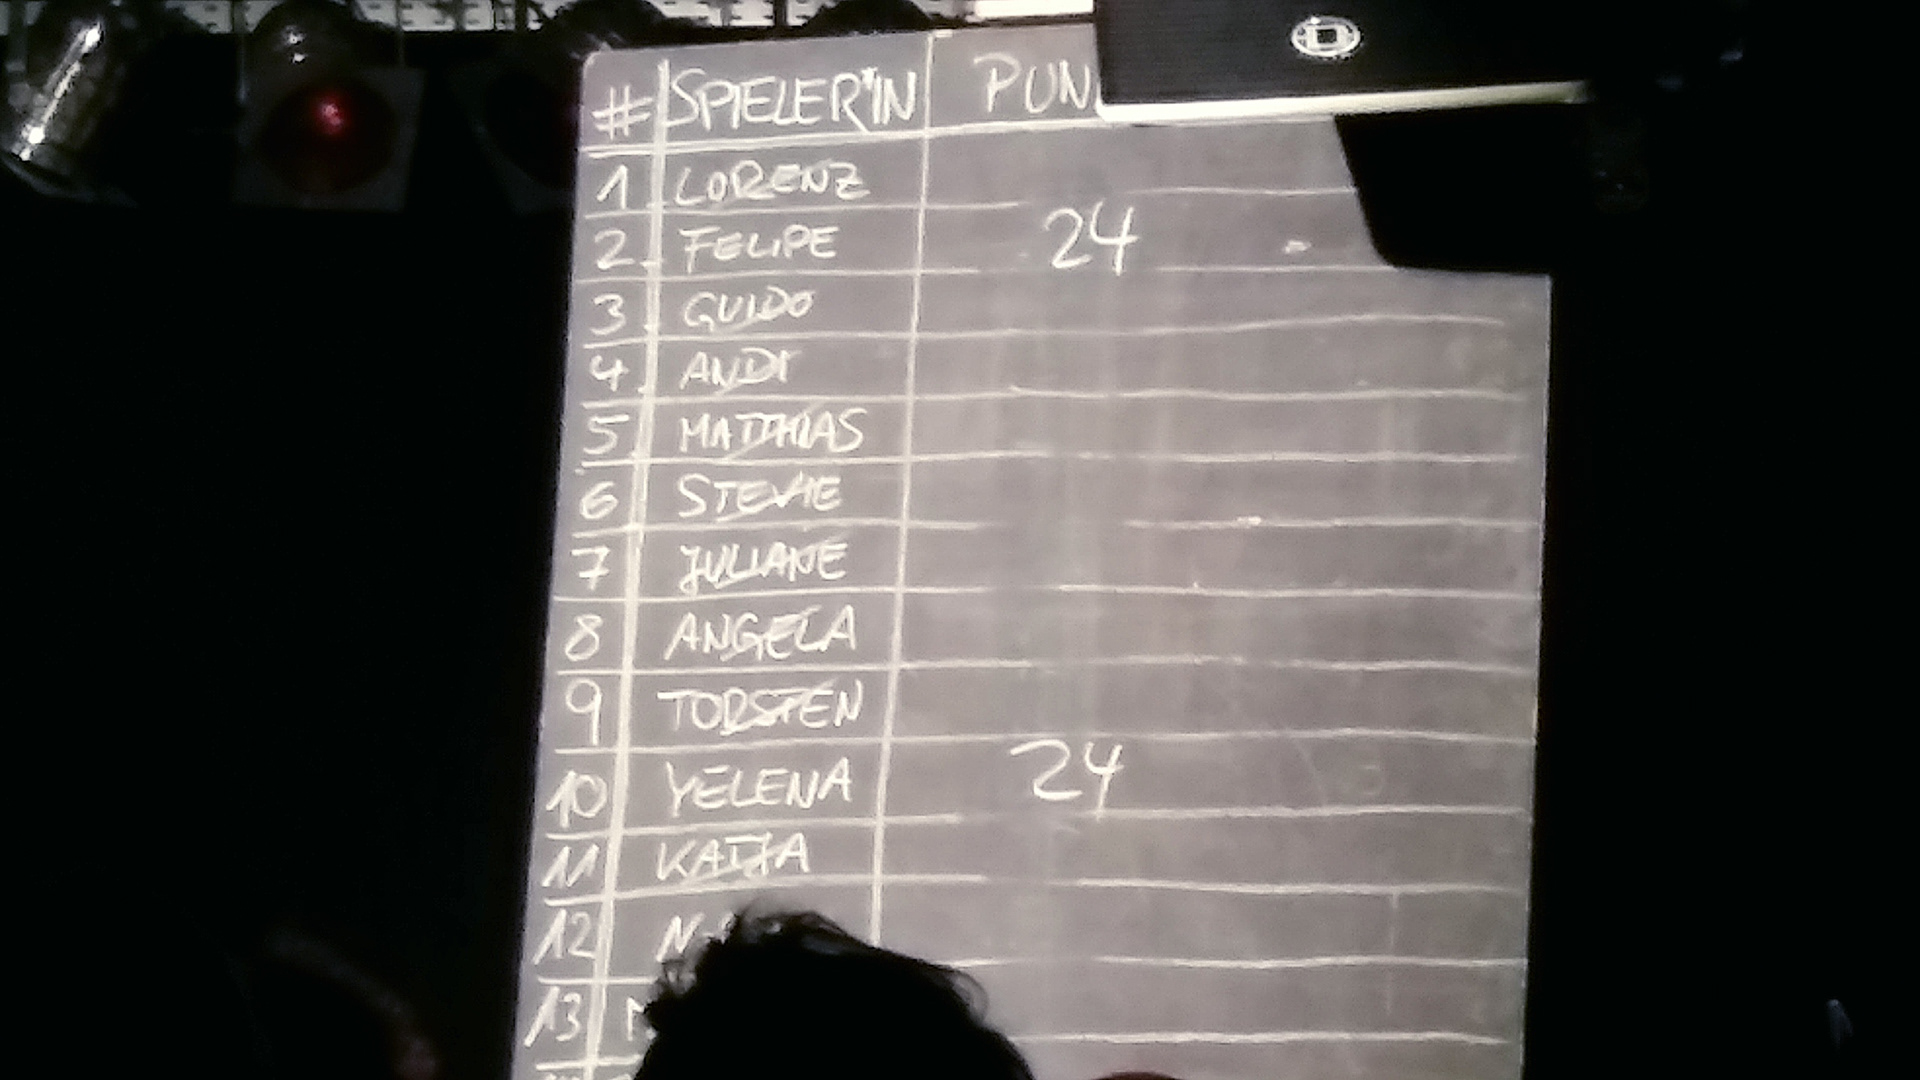 # SPIELER*IN PUN
1 LORENZ
2. FELIPE 24
3. GUIDO
4. ANDI
5. MATTHIAS
6 STEVIE
7 JULIANE
8 ANGELA
9 TORSTEN
10 YELENA 24
11 KATJA
12
13